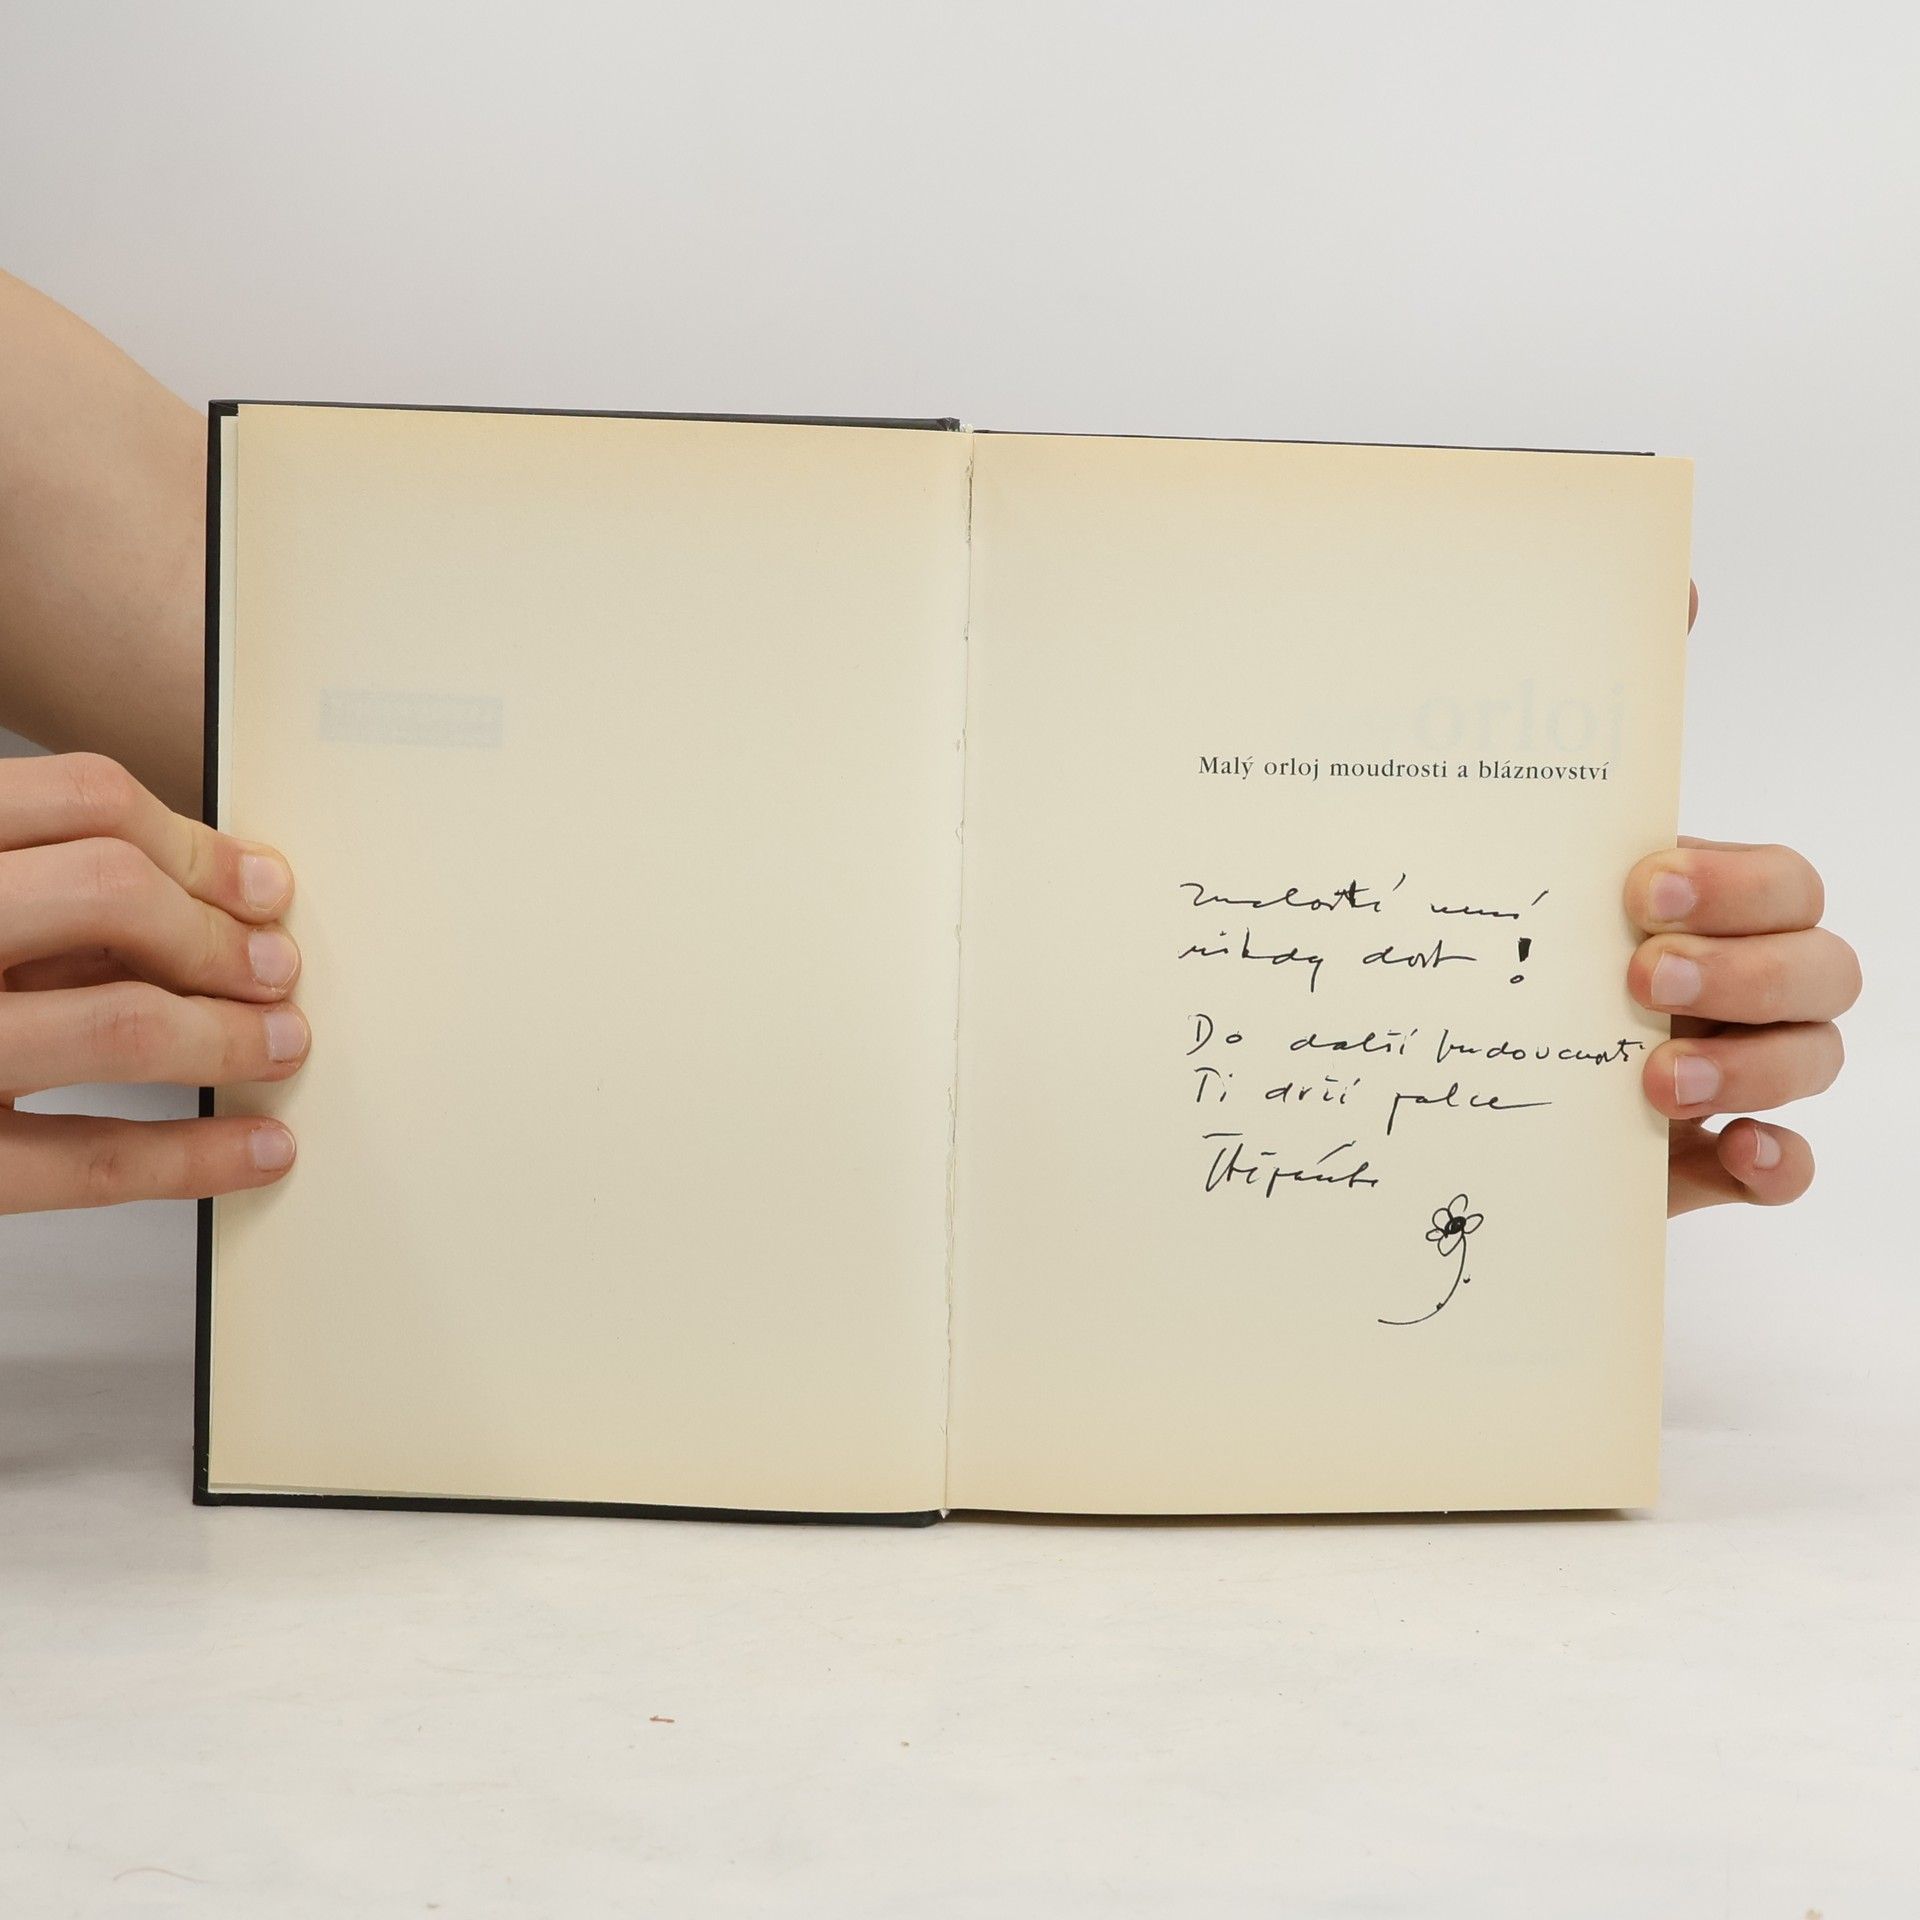 orloj
Malý orloj moudrosti a bláznovství
znalostí není
nikdy dost!
Do další budoucnosti
Ti drží palce
Štěpánka